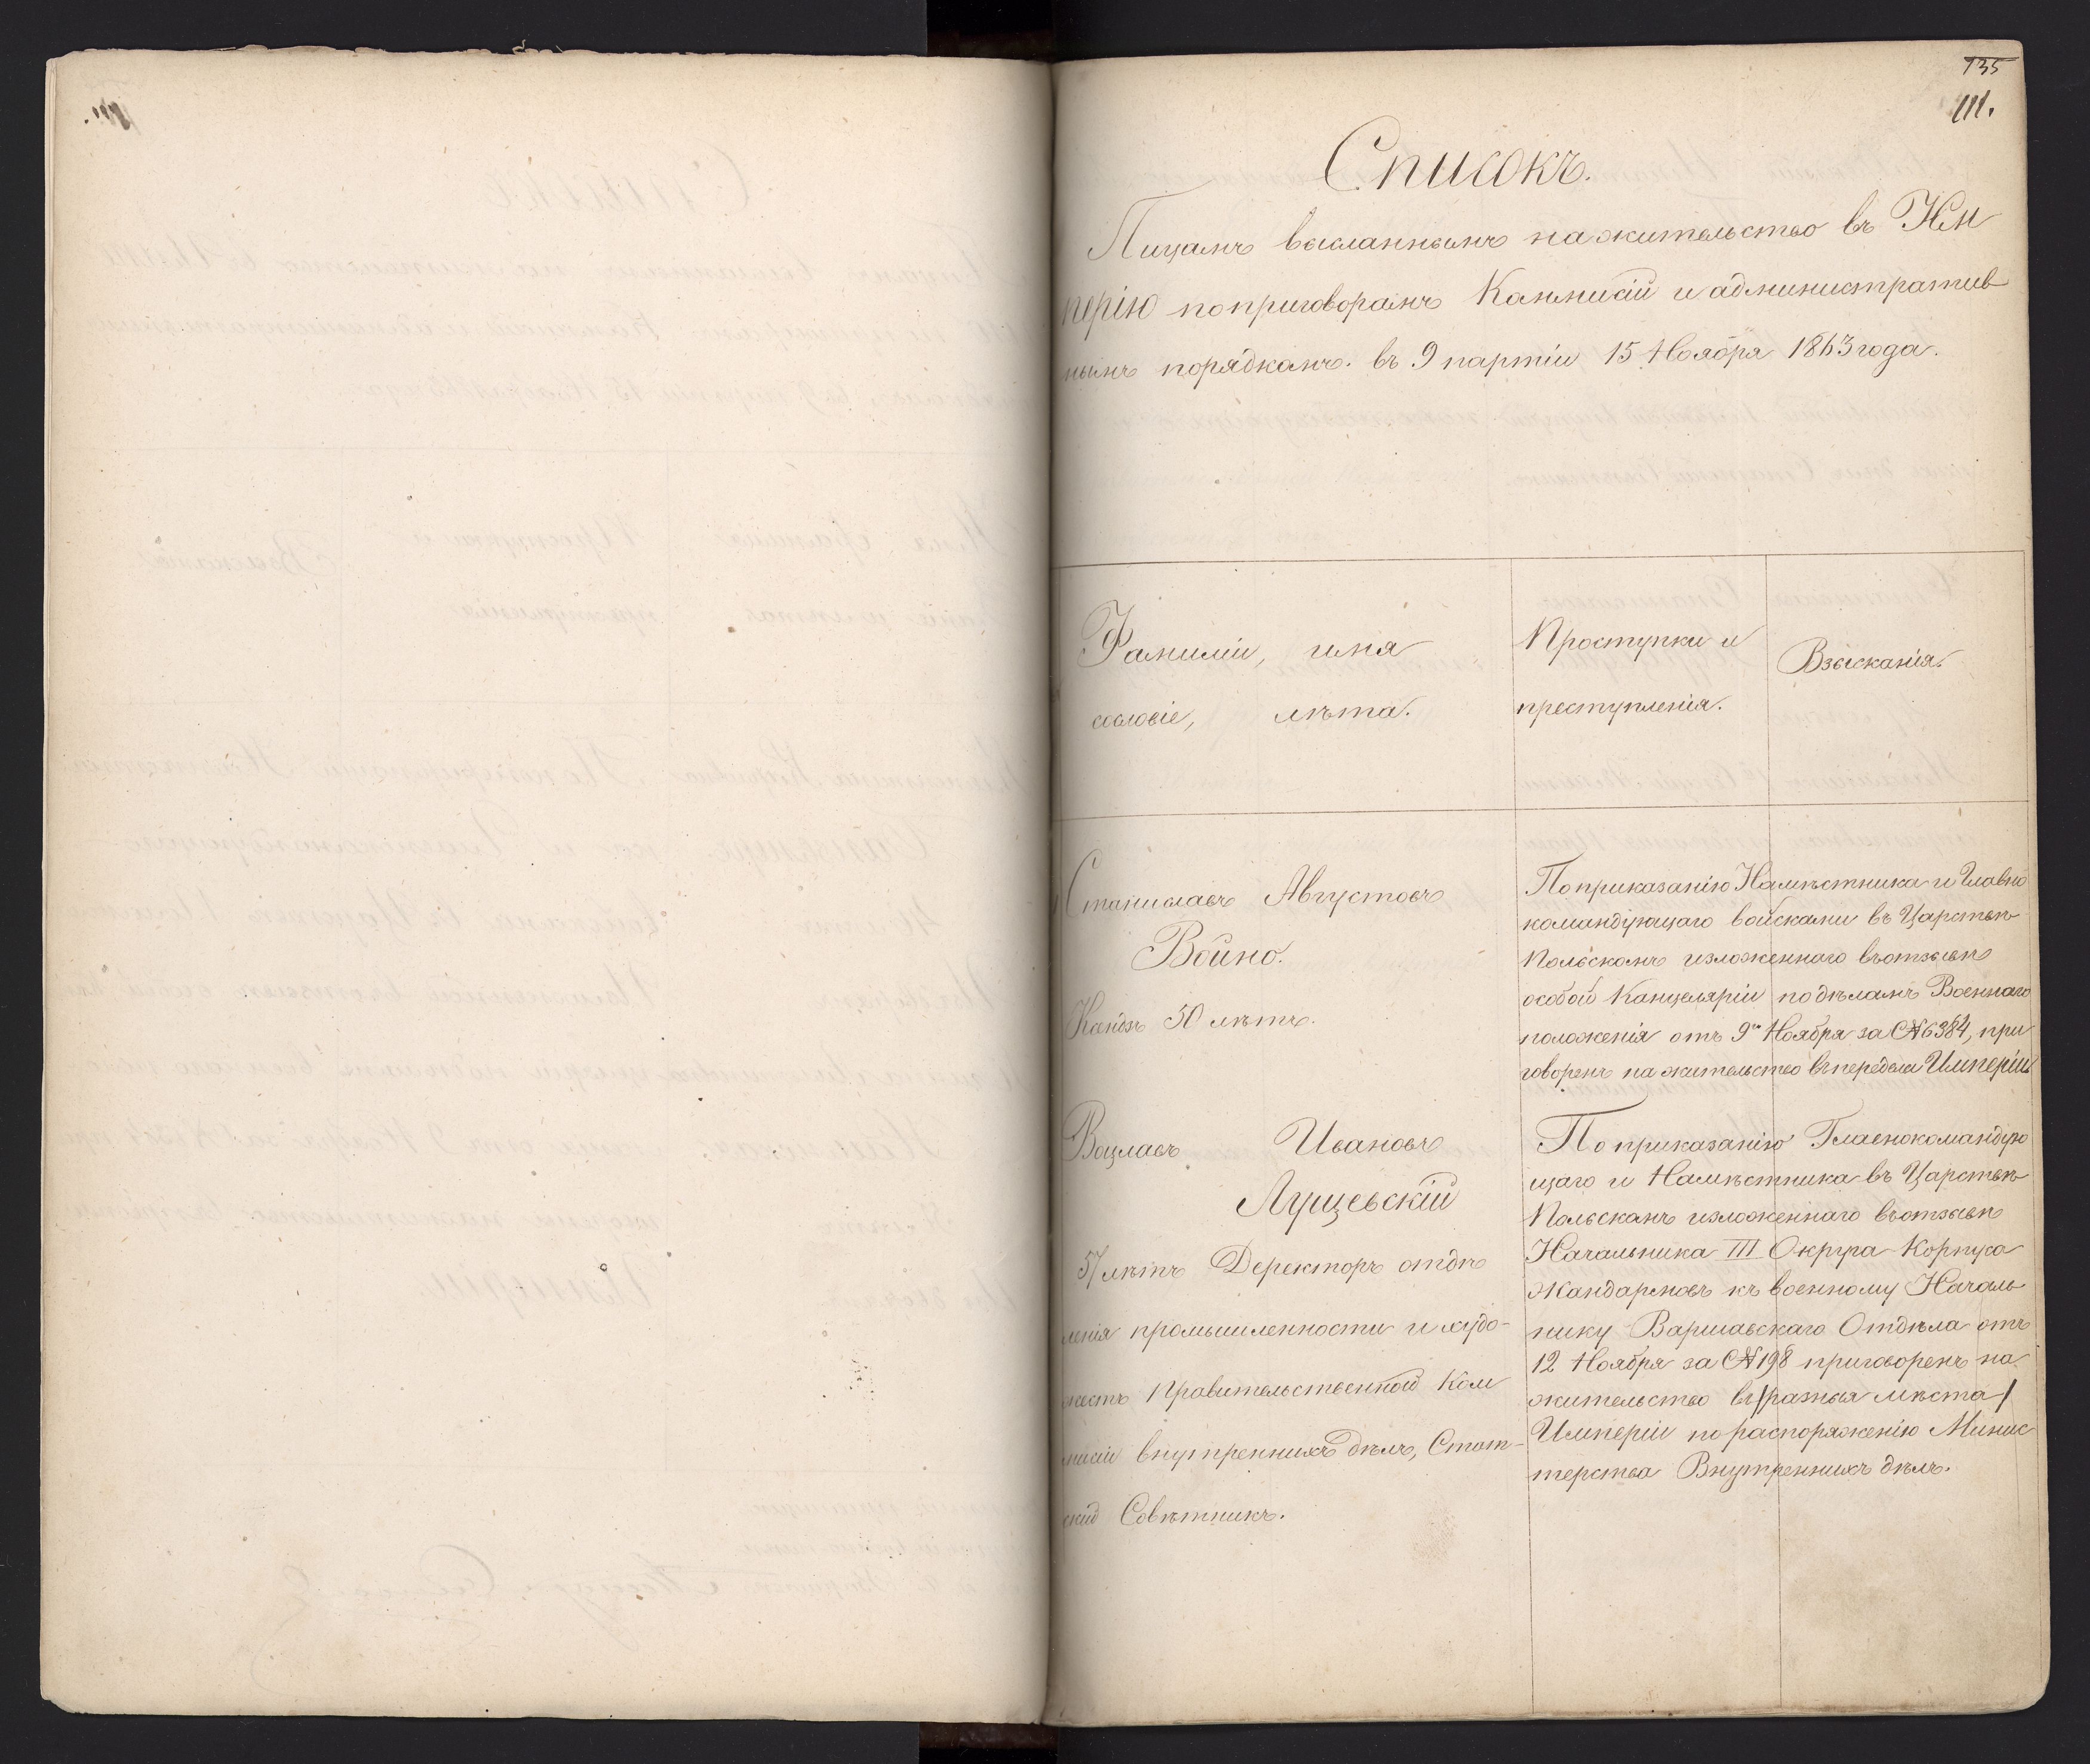 135
111.
Списокъ.
Лицамъ высланнымъ на жительство въ Им
перію по приговорамъ Коммисій и административ
нымъ порядкомъ. въ 9 партіи 15 Ноября 1863 года.
Фамиліи, имя
сословіе, лѣта.
Проступки и
преступленія.
Взысканія.
Станиславъ Августовъ
Войно.
Ксіндзъ 50 лѣтъ.
По приказанію Намѣстника и Главно
командующаго войсками въ Царствѣ
Польскомъ изложеннаго въ отзывѣ
особой Канцеляріи по дѣламъ Военнаго
положенія отъ 9го Ноября за № 6384, при
говоренъ на жительство въ пределы Имперіи
Вацлавъ Ивановъ
Лущевскій
57 лѣтъ Деректоръ отдѣ
ленія промышленности и худо-
жествъ Правительственной Ком
мисіи внутреннихъ дѣлъ, Стат-
скій Совѣтникъ.
По приказанію Главнокомандую
щаго и Намѣстника въ Царствѣ
Польскомъ изложеннаго въ отзывѣ
Начальника III Округа Корпуса
Жандармовъ къ военному Началь
нику Варшавскаго Отдѣла отъ
12 Ноября за № 198 приговоренъ на
жительство въ разныя мѣста
Имперіи по распоряженію Минис
терства Внутреннихъ дѣлъ.